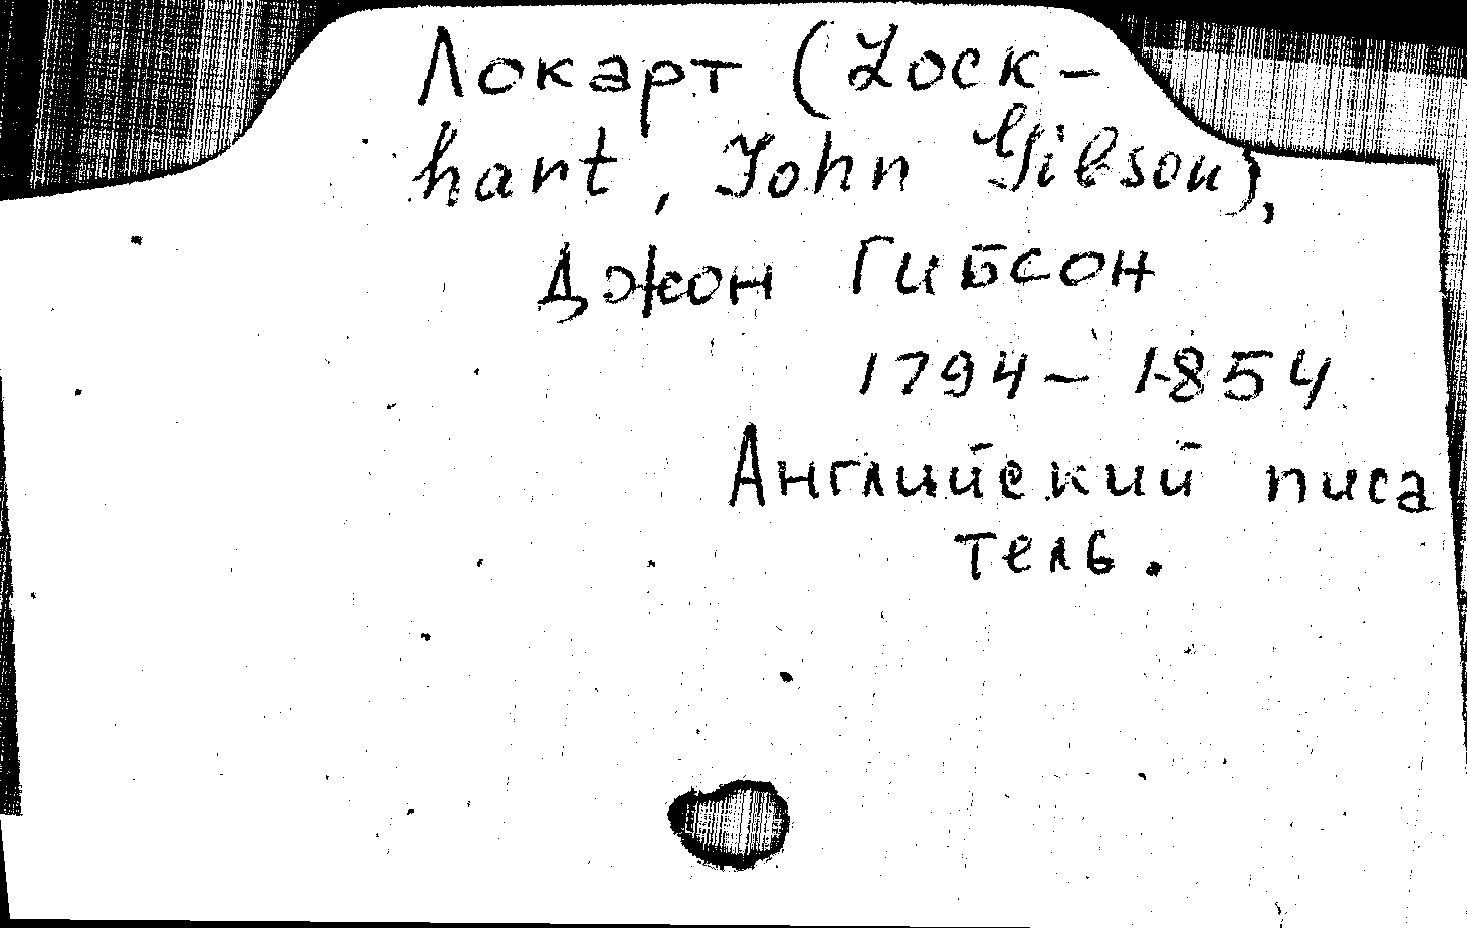 Локарт (Lock-
hart, John Gibson),
Джон Гибсон
1794-1854
Английский писа
тель.